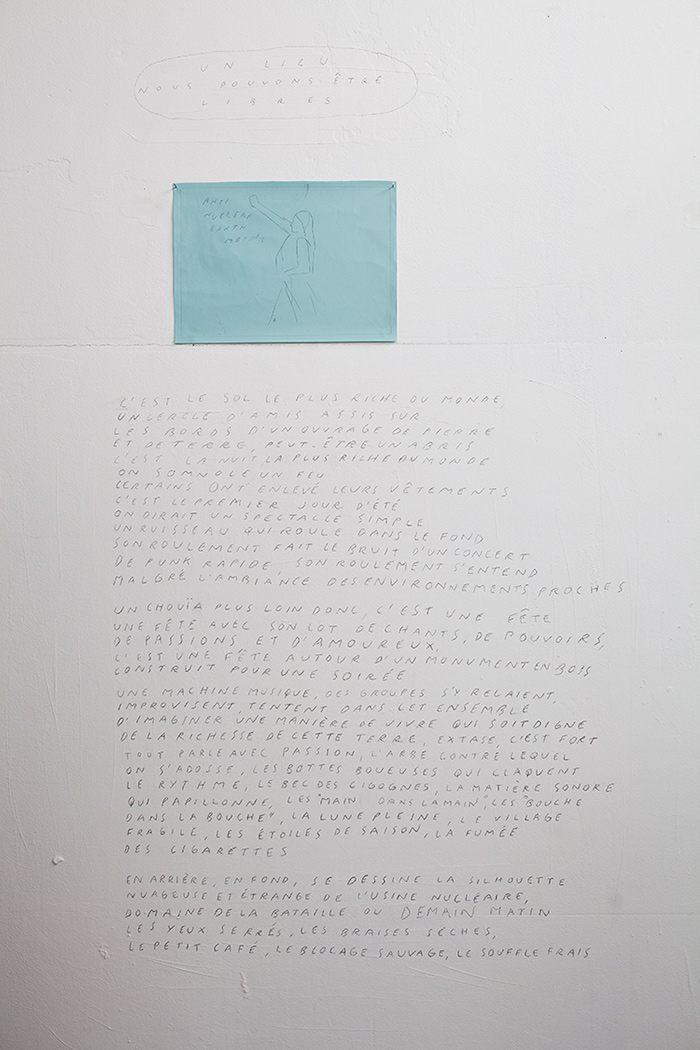 UN LIEU
NOUS POUVONS ÊTRE
LIBRES
ANTI
NUCLEAR
EARTH
C'EST LE SOL LE PLUS RICHE DU MONDE,
UN CERCLE D'AMIS ASSIS SUR
LES BORDS D'UN OUVRAGE DE PIERRE
ET DE TERRE, PEUT-ÊTRE UN ABRIS
C'EST LA NUIT LA PLUS RICHE DU MONDE
ON SOMNOLE UN FEU
CERTAINS ONT ENLEVÉ LEURS VÊTEMENTS
C'EST LE PREMIER JOUR D'ÉTÉ
ON DIRAIT UN SPECTACLE SIMPLE
UN RUISSEAU QUI ROULE DANS LE FOND
SON ROULEMENT FAIT LE BRUIT D'UN CONCERT
DE PUNK RAPIDE, SON ROULEMENT S'ENTEND
MALGRÉ L'AMBIANCE DES ENVIRONNEMENTS PROCHES
UN CHOUÏA PLUS LOIN DONC, C'EST UNE FÊTE
UNE FÊTE AVEC SON LOT DE CHANTS, DE POUVOIRS,
DE PASSIONS ET D'AMOUREUX,
C'EST UNE FÊTE AUTOUR D'UN MONUMENT EN BOIS
CONSTRUIT POUR UNE SOIRÉE
UNE MACHINE MUSIQUE, DES GROUPES S'Y RELAIENT,
IMPROVISENT, TENTENT DANS CET ENSEMBLE
D'IMAGINER UNE MANIÈRE DE VIVRE QUI SOIT DIGNE
DE LA RICHESSE DE CETTE TERRE, EXTASE, C'EST FORT
TOUT PARLE AVEC PASSION, L'ARBE CONTRE LEQUEL
ON S'ADOSSE, LES BOTTES BOUEUSES QUI CLAQUENT
LE RYTHME, LE BEC DES CIGOGNES, LA MATIÈRE SONORE
QUI PAPILLONNE, LES "MAIN DANS LA MAIN", LES "BOUCHE
DANS LA BOUCHE", LA LUNE PLEINE, LE VILLAGE
FRAGILE, LES ÉTOILES DE SAISON, LA FUMÉE
DES CIGARETTES
EN ARRIÈRE, EN FOND, SE DESSINE LA SILHOUETTE
NUAGEUSE ET ÉTRANGE DE L'USINE NUCLÉAIRE,
DOMAINE DE LA BATAILLE DU DEMAIN MATIN
LES YEUX SERRÉS, LES BRAISES SÈCHES,
LE PETIT CAFÉ, LE BLOCAGE SAUVAGE, LE SOUFFLE FRAIS